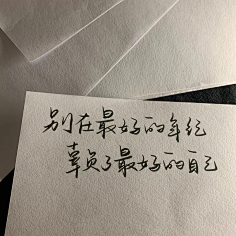 别在最好的年纪
辜负了最好的自己